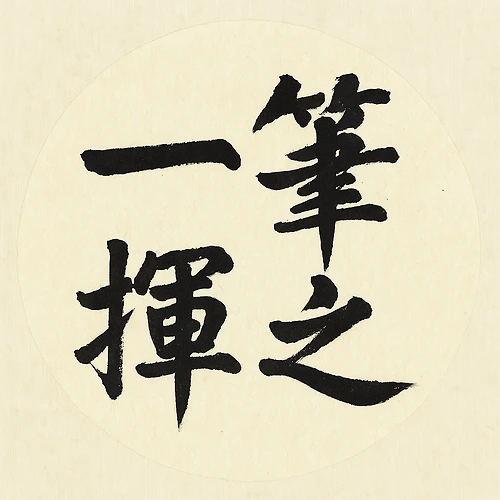 筆之
一揮